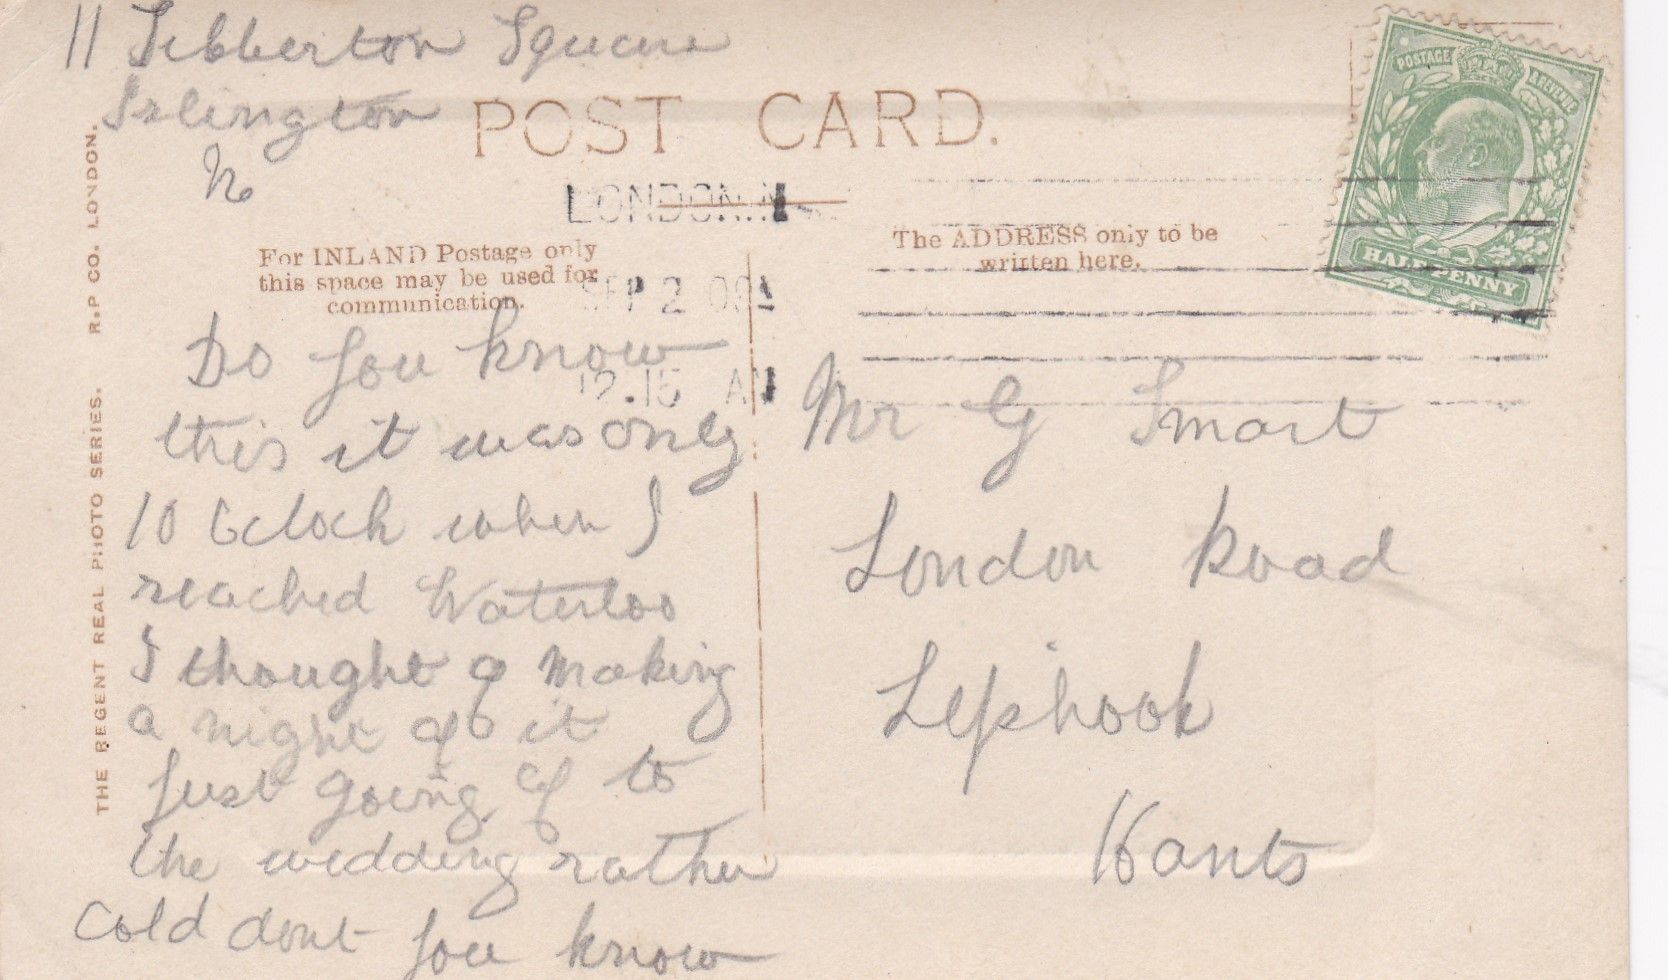 11 Tibberton Square
Islington
No
POST CARD.
LONDON. N
SEP 2 09
12.15 AM
POSTAGE REVENUE
HALFPENNY
For INLAND Postage only
this space may be used for
communication.
The ADDRESS only to be
written here.
THE REGENT REAL PHOTO SERIES. R.P CO. LONDON.
Do you know
this it was only
10 Oclock when I
reached Waterloo
I thought of making
a night of it
just going of to
the wedding rather
cold dont you know
Mr G Smart
London Road
Liphook
Hants